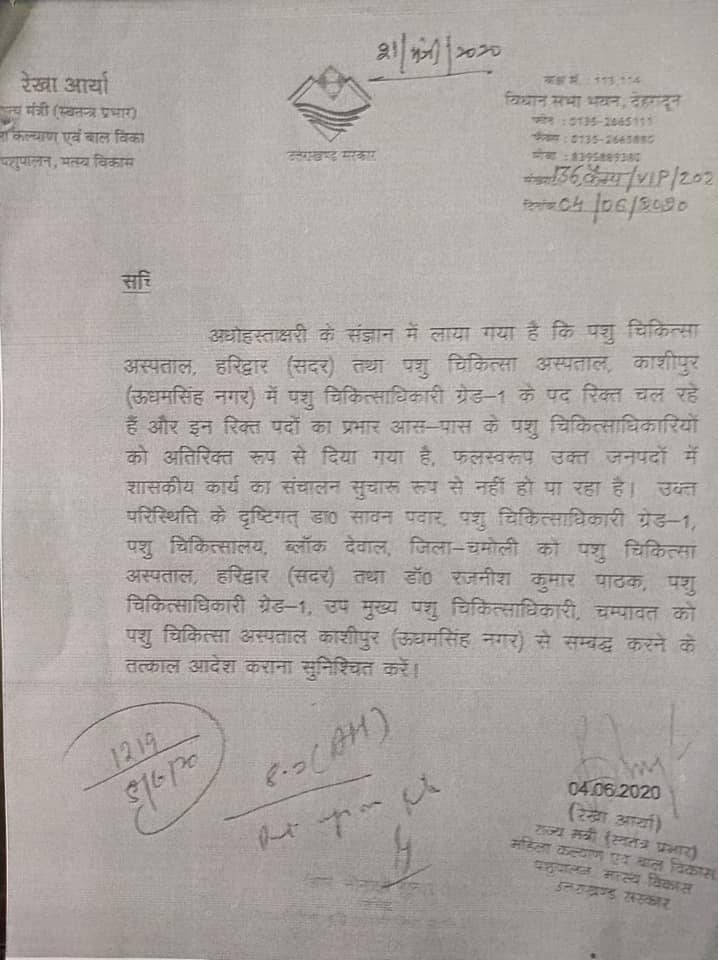 21/मंत्री/2020
रेखा आर्या
राज्य मंत्री (स्वतन्त्र प्रभार)
ला कल्याण एवं बाल विका
पशुपालन, मत्स्य विकास
उत्तराखण्ड सरकार
कक्ष सं. : 113,114
विधान सभा भवन, देहरादून
फोन : 0135-2665111
फैक्स : 0135-2665880
मोबा : 8395889380
संख्या 136 कैम्प/VIP/202
दिनांक 04/06/2020
सचि
अधोहस्ताक्षरी के संज्ञान में लाया गया है कि पशु चिकित्सा
अस्पताल, हरिद्वार (सदर) तथा पशु चिकित्सा अस्पताल, काशीपुर
(ऊधमसिंह नगर) में पशु चिकित्साधिकारी ग्रेड-1 के पद रिक्त चल रहे
हैं और इन रिक्त पदों का प्रभार आस-पास के पशु चिकित्साधिकारियों
को अतिरिक्त रूप से दिया गया है, फलस्वरूप उक्त जनपदों में
शासकीय कार्य का संचालन सुचारू रूप से नहीं हो पा रहा है। उक्त
परिस्थिति के दृष्टिगत् डा0 सावन पवार, पशु चिकित्साधिकारी ग्रेड-1,
पशु चिकित्सालय, ब्लॉक देवाल, जिला-चमोली को पशु चिकित्सा
अस्पताल, हरिद्वार (सदर) तथा डॉ0 रजनीश कुमार पाठक, पशु
चिकित्साधिकारी ग्रेड-1, उप मुख्य पशु चिकित्साधिकारी, चम्पावत को
पशु चिकित्सा अस्पताल काशीपुर (ऊधमसिंह नगर) से सम्बद्ध करने के
तत्काल आदेश कराना सुनिश्चित करें।
1219
8/6/20
(AH)
Put up on file
04.06.2020
(रेखा आर्या)
राज्य मंत्री (स्वतंत्र प्रभार)
महिला कल्याण एवं बाल विकास
पशुपालन, मत्स्य विकास
उत्तराखण्ड सरकार